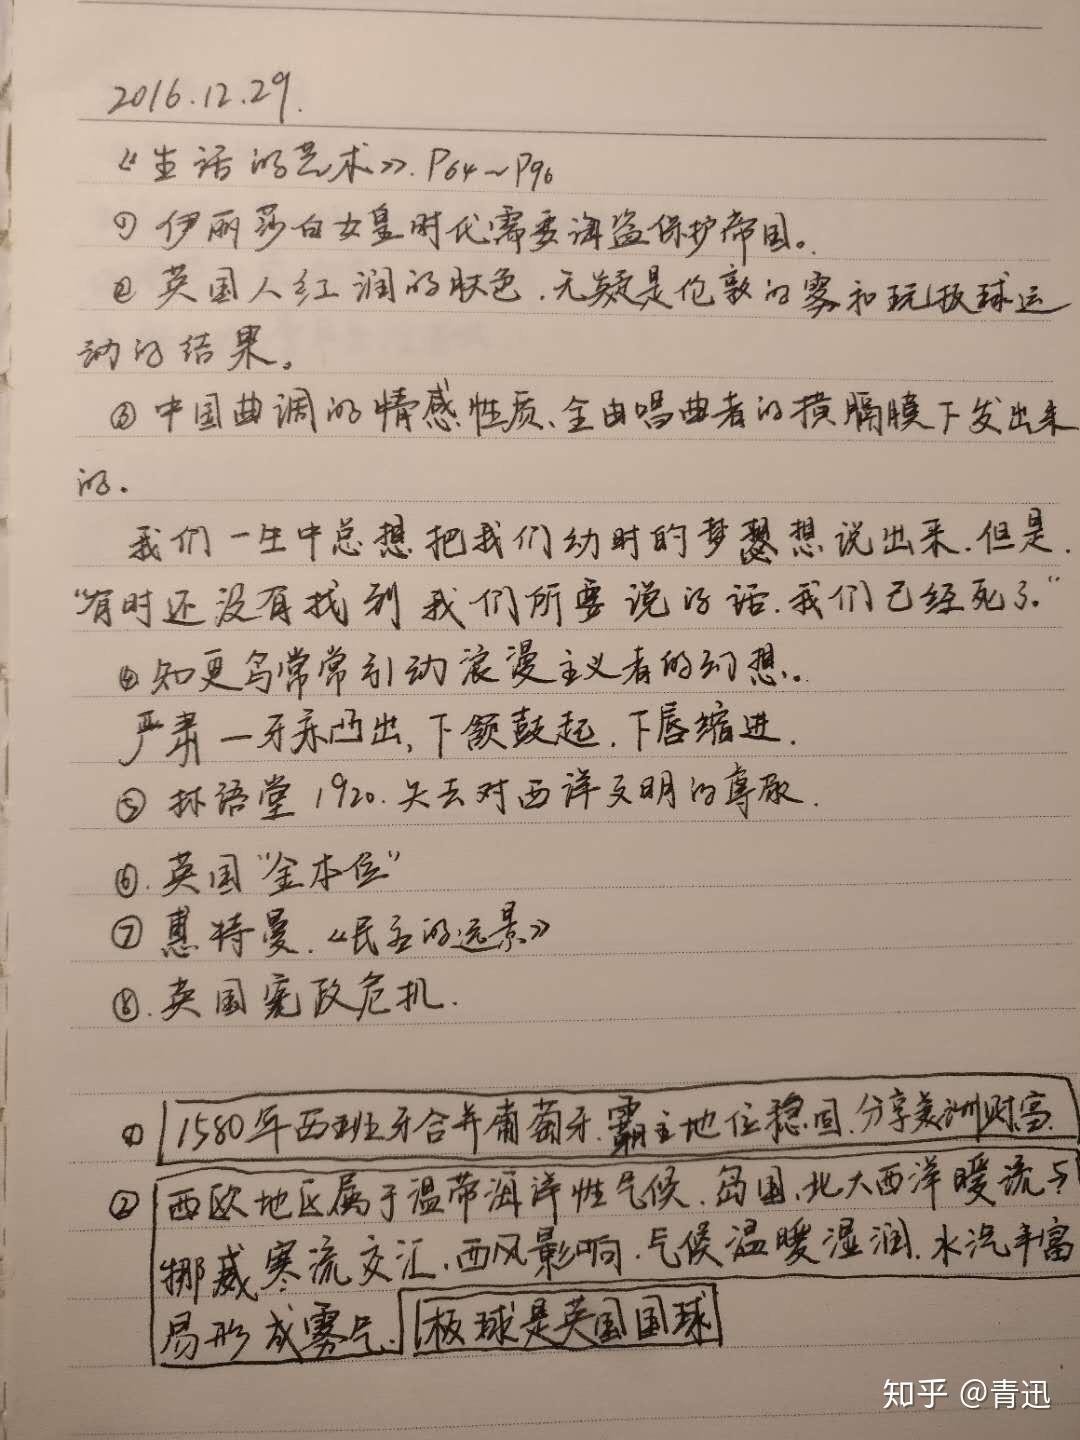 2016.12.29.
《生活的艺术》. P64~P96
① 伊丽莎白女皇时代需要海盗保护帝国。
② 英国人红润的肤色.无疑是伦敦的雾和玩板球运
动的结果。
③ 中国曲调的情感性质、全由唱曲者的横膈膜下发出来
的.
我们一生中总想把我们幼时的梦想说出来.但是.
“有时还没有找到我们所要说的话.我们已经死了.”
④ 知更鸟常常引动浪漫主义者的幻想..
严肃—牙床凸出,下颌鼓起.下唇缩进.
⑤ 林语堂1920.失去对西洋文明的尊敬.
⑥.英国“金本位”
⑦ 惠特曼.《民主的远景》
⑧.英国宪政危机.
① 1580年西班牙合并葡萄牙.霸主地位稳固.分享美洲财富.
② 西欧地区属于温带海洋性气候.岛国.北大西洋暖流与
挪威寒流交汇.西风影响.气候温暖湿润.水汽丰富
易形成雾气. 板球是英国国球
知乎 @青迅